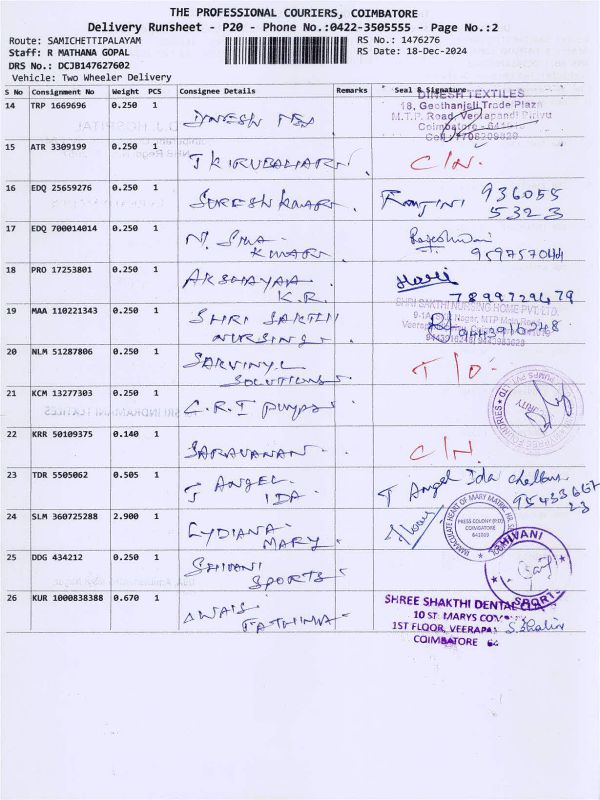 THE PROFESSIONAL COURIERS, COIMBATORE
Delivery Runsheet - P20 - Phone No.:0422-3505555 - Page No.:2
Route: SAMICHETTIPALAYAM RS No.: 1476276
Staff: R MATHANA GOPAL RS Date: 18-Dec-2024
DRS No.: DCJB147627602
Vehicle: Two Wheeler Delivery
S No Consignment No Weight PCS Consignee Details Remarks Seal & Signature
DINESH TEXTILES
14 TRP 1669696 0.250 1 DINESH
18, Geethanjali Trade Plaza
M.T.P. Road, Veerapandi Pirivu
Coimbatore
15 ATR 3309199 0.250 1 C/N.
16 EDQ 25659276 0.250 1 SURESH KUMAR 936055
5323
17 EDQ 700014014 0.250 1 N. SIVA Rajeshwari
KUMAR 959757044
18 PRO 17253801 0.250 1 AKSHAYAA Hari
K.R. 7899729479
SHRI SAKTHI NURSING HOME PVT. LTD.
19 MAA 110221343 0.250 1 SHRI SAKTHI
NURSING 9443916248
20 NLM 51287806 0.250 1 SARVINYL T/O.
SOLUTIONS
21 KCM 13277303 0.250 1 C.R.I pumps
22 KRR 50109375 0.140 1 SARAVANAN. C/N.
23 TDR 5505062 0.505 1 T ANGEL. T Angel Ida
IDA
IMMACULATE HEART OF MARY MATRIC HR. SEC
PRESS COLONY (P.O.)
COIMBATORE
641019
24 SLM 360725288 2.900 1 LYDIANA
MARY
25 DDG 434212 0.250 1 SHIVANI SHIVANI
SPORTS SPORTS
26 KUR 1000838388 0.670 1 AWAIS
FATHIMA
SHREE SHAKTHI DENTAL
10 ST. MARYS
1ST FLOOR, S. Shalini
COIMBATORE